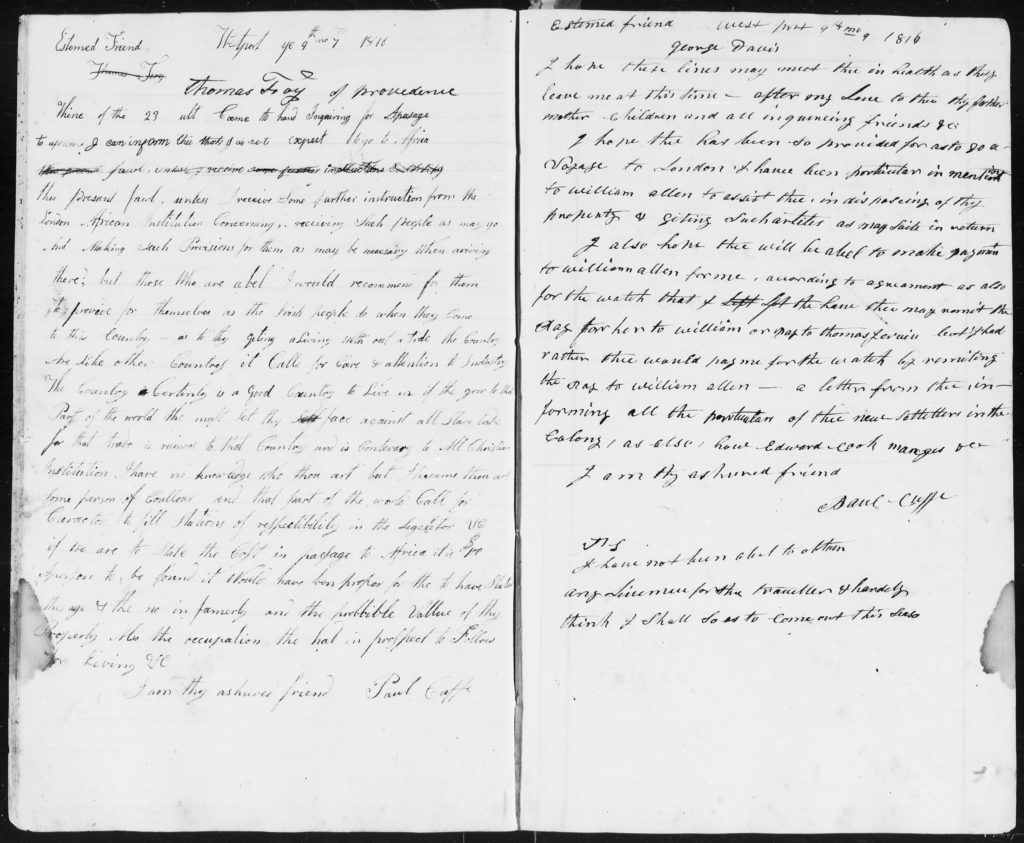 Estemed Friend Westport ye 9th mo 7 1816
Thomas Fry
Thomas Fay of Providence
Thine of the 23 ult Came to hand Inquiring for Apasage
to I can inform thee that I do not expect to go to Africa
this presant faul. unless I receive some further instructions
this Presant faul. unless I receive Some further instruction from the
London African Institution Concerning, receiving Such people as may go
and Making Such Provisions for them as may be necesary When ariving
there? but those Who are abel I would recommend for them
to provide for themselves as the Irish people do when they Come
to this Country – as to thy geting aLiving with out it the Country
are like other Countrys it Calls for Care & attention to Industry
The Country Certinly is a Good Country to Live in if the goes to that
Part of the world the must Set thy face against all Slave trade
for that trade is ruinus to that Country and is Conterary to All Christian
Institution I have no knowledge who thou art but I preasume thou art
Some person of Coullour and that part of the world Call for
Caractor to fill Stations of respectibility in the Legesetor &C
if we are to State the Cost in pasage to Africa it is
Aperson to be found it Would have ben proper for the to have Stated
thy age & the no in famerly and the probbible Vallue of thy
Property Also the occupation the hat in prospect to Follow
for Living &C
I am thy ashured friend Paul Cuffe
Estemed friend West port 9th mo 9 1816
George Davis
I hope these lines may meet thee in health as they
leave me at this time – after my Love to thee thy father
mother – Children and all inquireing friends &c
I hope the has been So provided for as to go a
Voyage to London I have been particular in mention
to William allen to assist thee, in disposeing of thy
property & giting Such artiles as may Suite in return
I also hope thee will be abel to make payment
to william allen for me, according to agreament as also
for the watch that I left Left the have thee may remit the
pay for her to william or pay to thomas but I had
rather thee would pay me for the watch by remiting
the pay to william allen – a letter from thee in-
forming all the particulars of thee new Settellers in the
Colony, as also, how Edward Cook manages &c
I am thy ashured friend
Paul Cuffe
PS
I have not been abel to obtain
any Line men for the traveller & hardly
think I Shall So as to Come out this Season